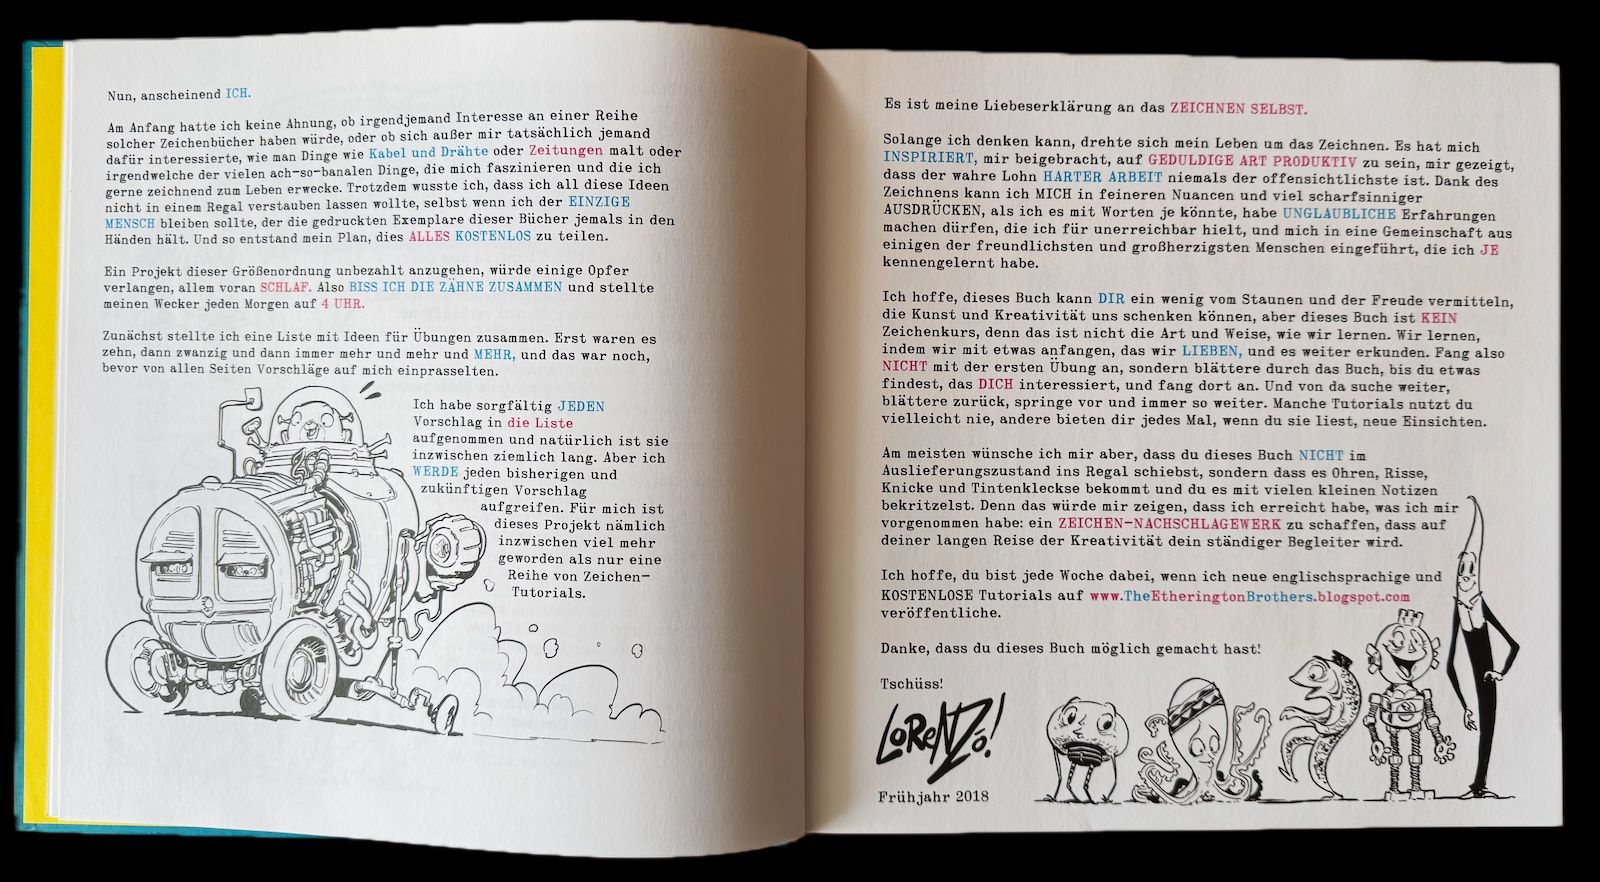 Nun, anscheinend ICH.
Am Anfang hatte ich keine Ahnung, ob irgendjemand Interesse an einer Reihe
solcher Zeichenbücher haben würde, oder ob sich außer mir tatsächlich jemand
dafür interessierte, wie man Dinge wie Kabel und Drähte oder Zeitungen malt oder
irgendwelche der vielen ach-so-banalen Dinge, die mich faszinieren und die ich
gerne zeichnend zum Leben erwecke. Trotzdem wusste ich, dass ich all diese Ideen
nicht in einem Regal verstauben lassen wollte, selbst wenn ich der EINZIGE
MENSCH bleiben sollte, der die gedruckten Exemplare dieser Bücher jemals in den
Händen hält. Und so entstand mein Plan, dies ALLES KOSTENLOS zu teilen.
Ein Projekt dieser Größenordnung unbezahlt anzugehen, würde einige Opfer
verlangen, allem voran SCHLAF. Also BISS ICH DIE ZÄHNE ZUSAMMEN und stellte
meinen Wecker jeden Morgen auf 4 UHR.
Zunächst stellte ich eine Liste mit Ideen für Übungen zusammen. Erst waren es
zehn, dann zwanzig und dann immer mehr und mehr und MEHR, und das war noch,
bevor von allen Seiten Vorschläge auf mich einprasselten.
Ich habe sorgfältig JEDEN
Vorschlag in die Liste
aufgenommen und natürlich ist sie
inzwischen ziemlich lang. Aber ich
WERDE jeden bisherigen und
zukünftigen Vorschlag
aufgreifen. Für mich ist
dieses Projekt nämlich
inzwischen viel mehr
geworden als nur eine
Reihe von Zeichen-
Tutorials.
Es ist meine Liebeserklärung an das ZEICHNEN SELBST.
Solange ich denken kann, drehte sich mein Leben um das Zeichnen. Es hat mich
INSPIRIERT, mir beigebracht, auf GEDULDIGE ART PRODUKTIV zu sein, mir gezeigt,
dass der wahre Lohn HARTER ARBEIT niemals der offensichtlichste ist. Dank des
Zeichnens kann ich MICH in feineren Nuancen und viel scharfsinniger
AUSDRÜCKEN, als ich es mit Worten je könnte, habe UNGLAUBLICHE Erfahrungen
machen dürfen, die ich für unerreichbar hielt, und mich in eine Gemeinschaft aus
einigen der freundlichsten und großherzigsten Menschen eingeführt, die ich JE
kennengelernt habe.
Ich hoffe, dieses Buch kann DIR ein wenig vom Staunen und der Freude vermitteln,
die Kunst und Kreativität uns schenken können, aber dieses Buch ist KEIN
Zeichenkurs, denn das ist nicht die Art und Weise, wie wir lernen. Wir lernen,
indem wir mit etwas anfangen, das wir LIEBEN, und es weiter erkunden. Fang also
NICHT mit der ersten Übung an, sondern blättere durch das Buch, bis du etwas
findest, das DICH interessiert, und fang dort an. Und von da suche weiter,
blättere zurück, springe vor und immer so weiter. Manche Tutorials nutzt du
vielleicht nie, andere bieten dir jedes Mal, wenn du sie liest, neue Einsichten.
Am meisten wünsche ich mir aber, dass du dieses Buch NICHT im
Auslieferungszustand ins Regal schiebst, sondern dass es Ohren, Risse,
Knicke und Tintenkleckse bekommt und du es mit vielen kleinen Notizen
bekritzelst. Denn das würde mir zeigen, dass ich erreicht habe, was ich mir
vorgenommen habe: ein ZEICHEN-NACHSCHLAGEWERK zu schaffen, dass auf
deiner langen Reise der Kreativität dein ständiger Begleiter wird.
Ich hoffe, du bist jede Woche dabei, wenn ich neue englischsprachige und
KOSTENLOSE Tutorials auf www.TheEtheringtonBrothers.blogspot.com
veröffentliche.
Danke, dass du dieses Buch möglich gemacht hast!
Tschüss!
LORENZO!
Frühjahr 2018